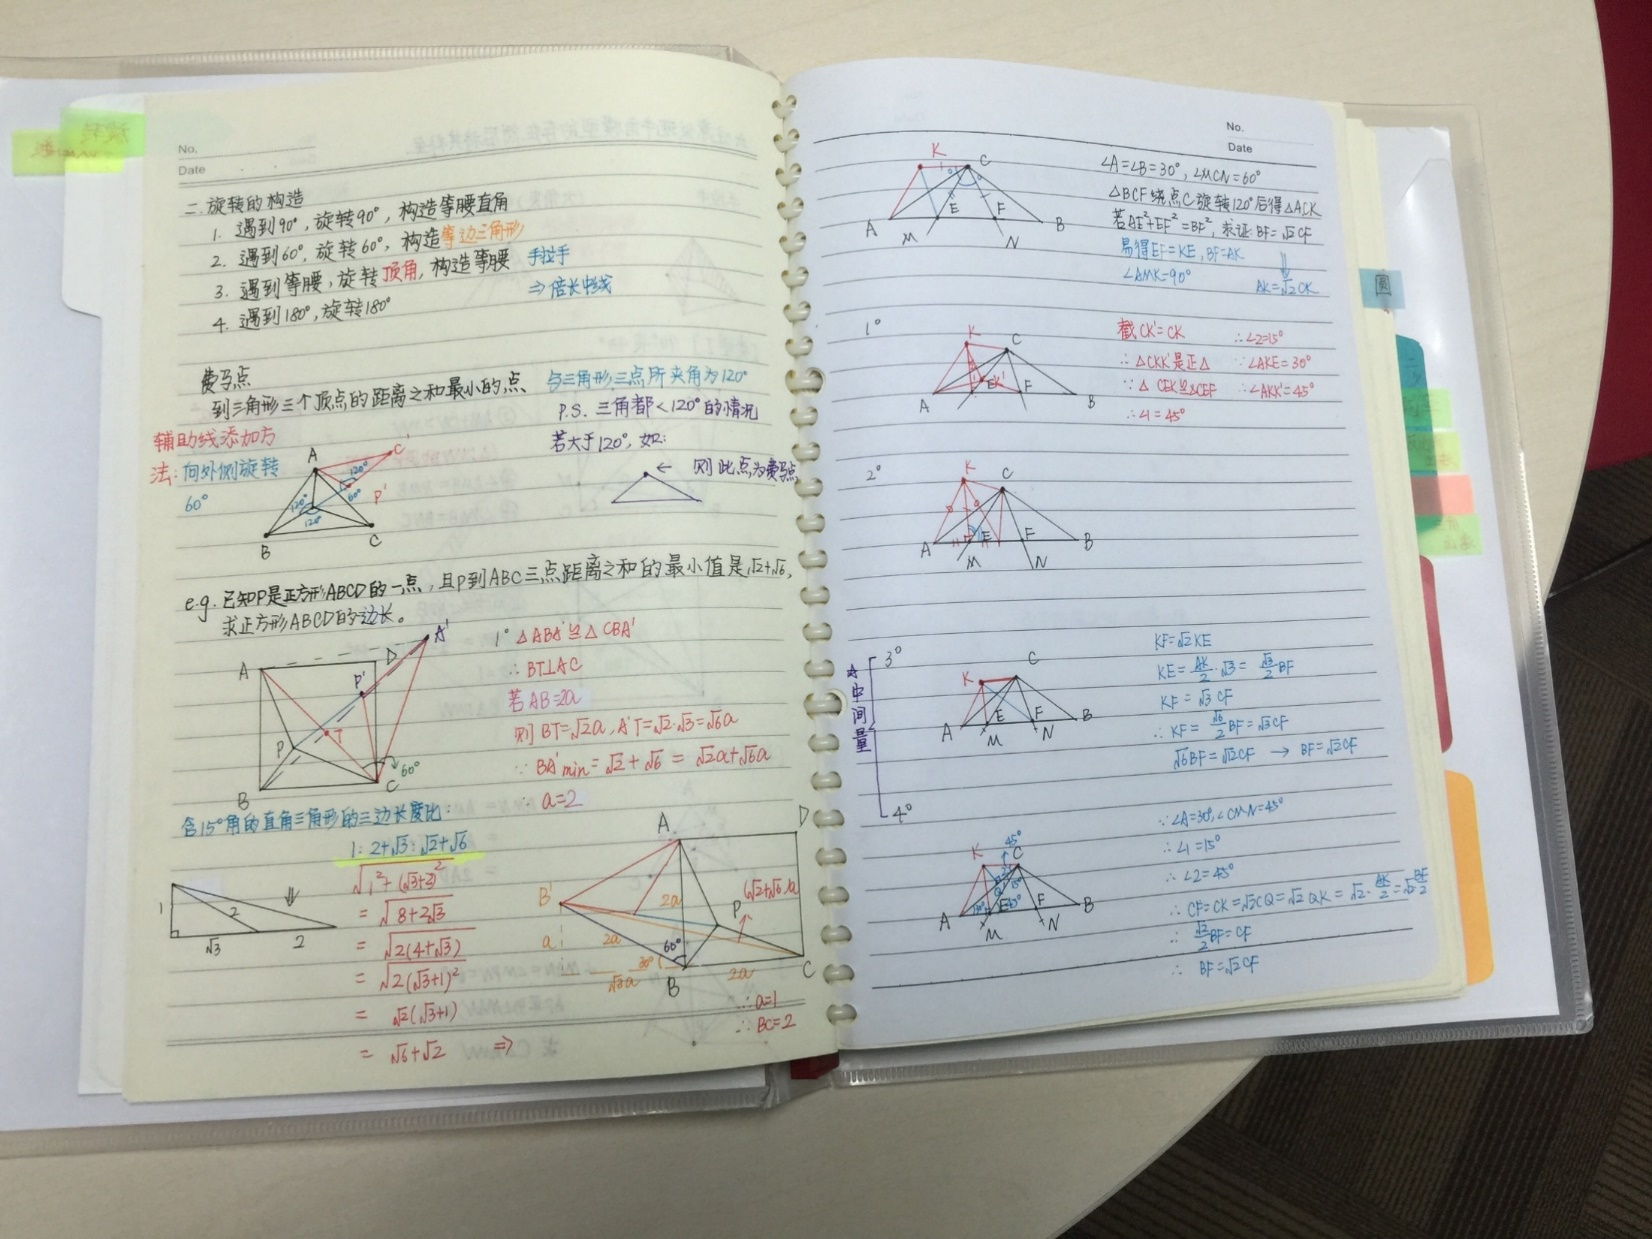 No.
Date
二.旋转的构造
1. 遇到90°,旋转90°,构造等腰直角
2. 遇到60°,旋转60°,构造等边三角形
3. 遇到等腰,旋转顶角,构造等腰 手拉手
4. 遇到180°,旋转180° ⇒倍长中线
费马点
到三角形三个顶点的距离之和最小的点 与三角形三点所夹角为120°
P.S. 三角都<120°的情况
若大于120°,如:
← 则此点为费马点
辅助线添加方
法:向外侧旋转
60°
A C' 120° 60° P' 120° 120° B C
e.g. 已知P是正方形ABCD的一点,且P到ABC三点距离之和的最小值是√2+√6,
求正方形ABCD的边长。
A D A' P' P T B C 60°
1° △ABA'≌△CBA'
∴BT⊥AC
若AB=2a
则BT=√2a, A'T=√2·√3=√6a
∵BA'min=√2+√6=√2a+√6a
∴a=2
含15°角的直角三角形的三边长度比:
1:2+√3:√2+√6
√1²+(√3+2)²
=√8+2√3
=√2(4+√3)
=√2(√3+1)²
=√2(√3+1)
=√6+√2 ⇒
1 2 √3 2
A D B' 2a P a 2a 60° 30° B 2a C
∴a=1
∴BC=2
No.
Date
K C A E F B M N
∠A=∠B=30°,∠MCN=60°
△BCF绕点C旋转120°后得△ACK
若AE²+EF²=BF²,求证:BF=√2CF
易得EF=KE,BF=AK
∠AMK=90° AK=√2CK
1°
K C A E K' F B
截CK'=CK ∴∠2=15°
∴△CKK'是正△ ∴∠AKE=30°
∵△CEK≌△CEF ∴∠AKK'=45°
∴∠1=45°
2°
K C A E F B M N
☆中间量
3°
K C A E F B M N
KF=√2KE
KE=AK/2·√3=√3/2BF
KF=√3CF
∴KF=√6/2BF=√3CF
√6BF=√2CF → BF=√2CF
4°
45° K C A E F B M N
∵∠A=30°,∠CMN=45°
∴∠1=15°
∴∠2=45°
∴CF=CK=√2CQ=√2QK=√2·AK/2=√2BF/2
∴√2/2BF=CF
∴BF=√2CF
圆